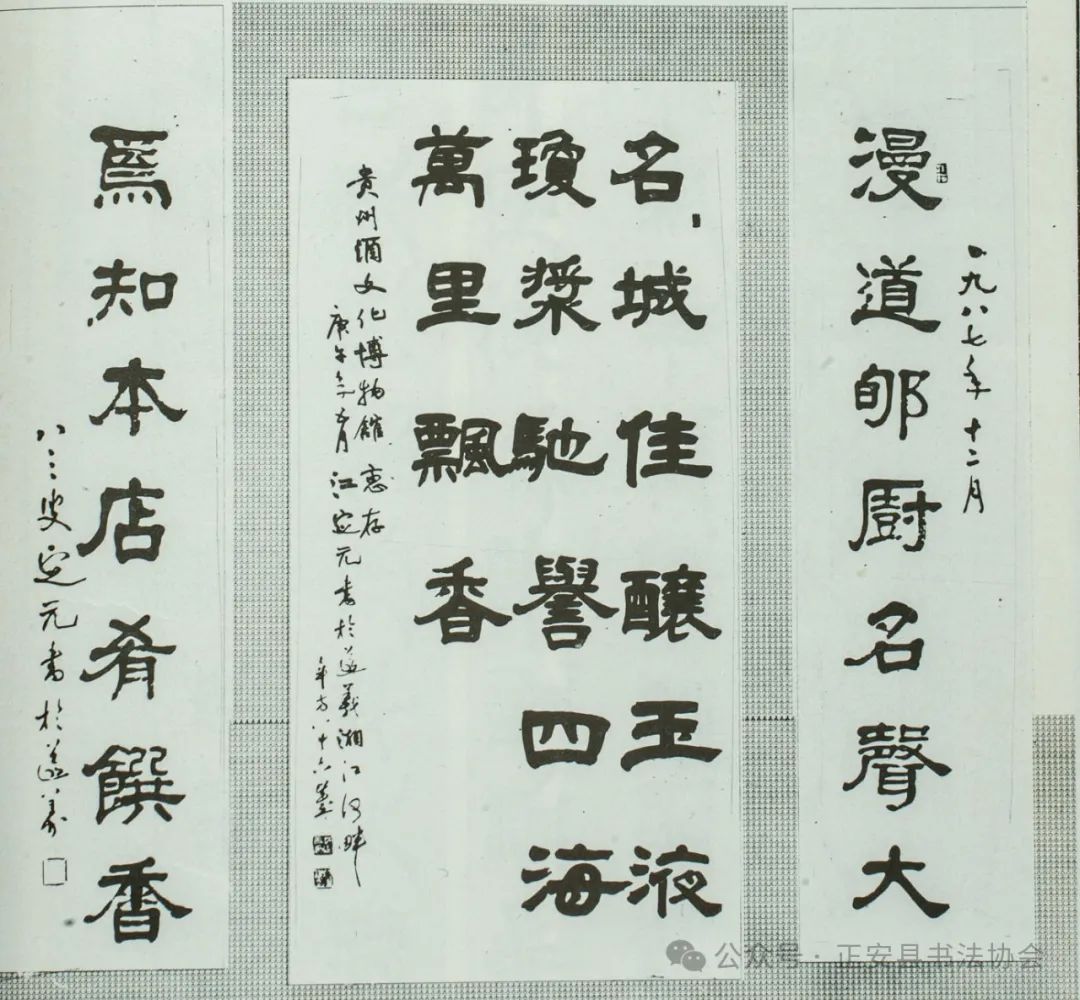 一九八七年十二月
漫道郇厨名聲大
名城佳釀玉液
瓊漿馳譽四海
萬里飄香
贵州酒文化博物館惠存
庚午 月江定元書於遵義湘江河畔
年方八十六歲
焉知本店肴饌香
八三叟定元書於遵義
公众号·正安县书法协会